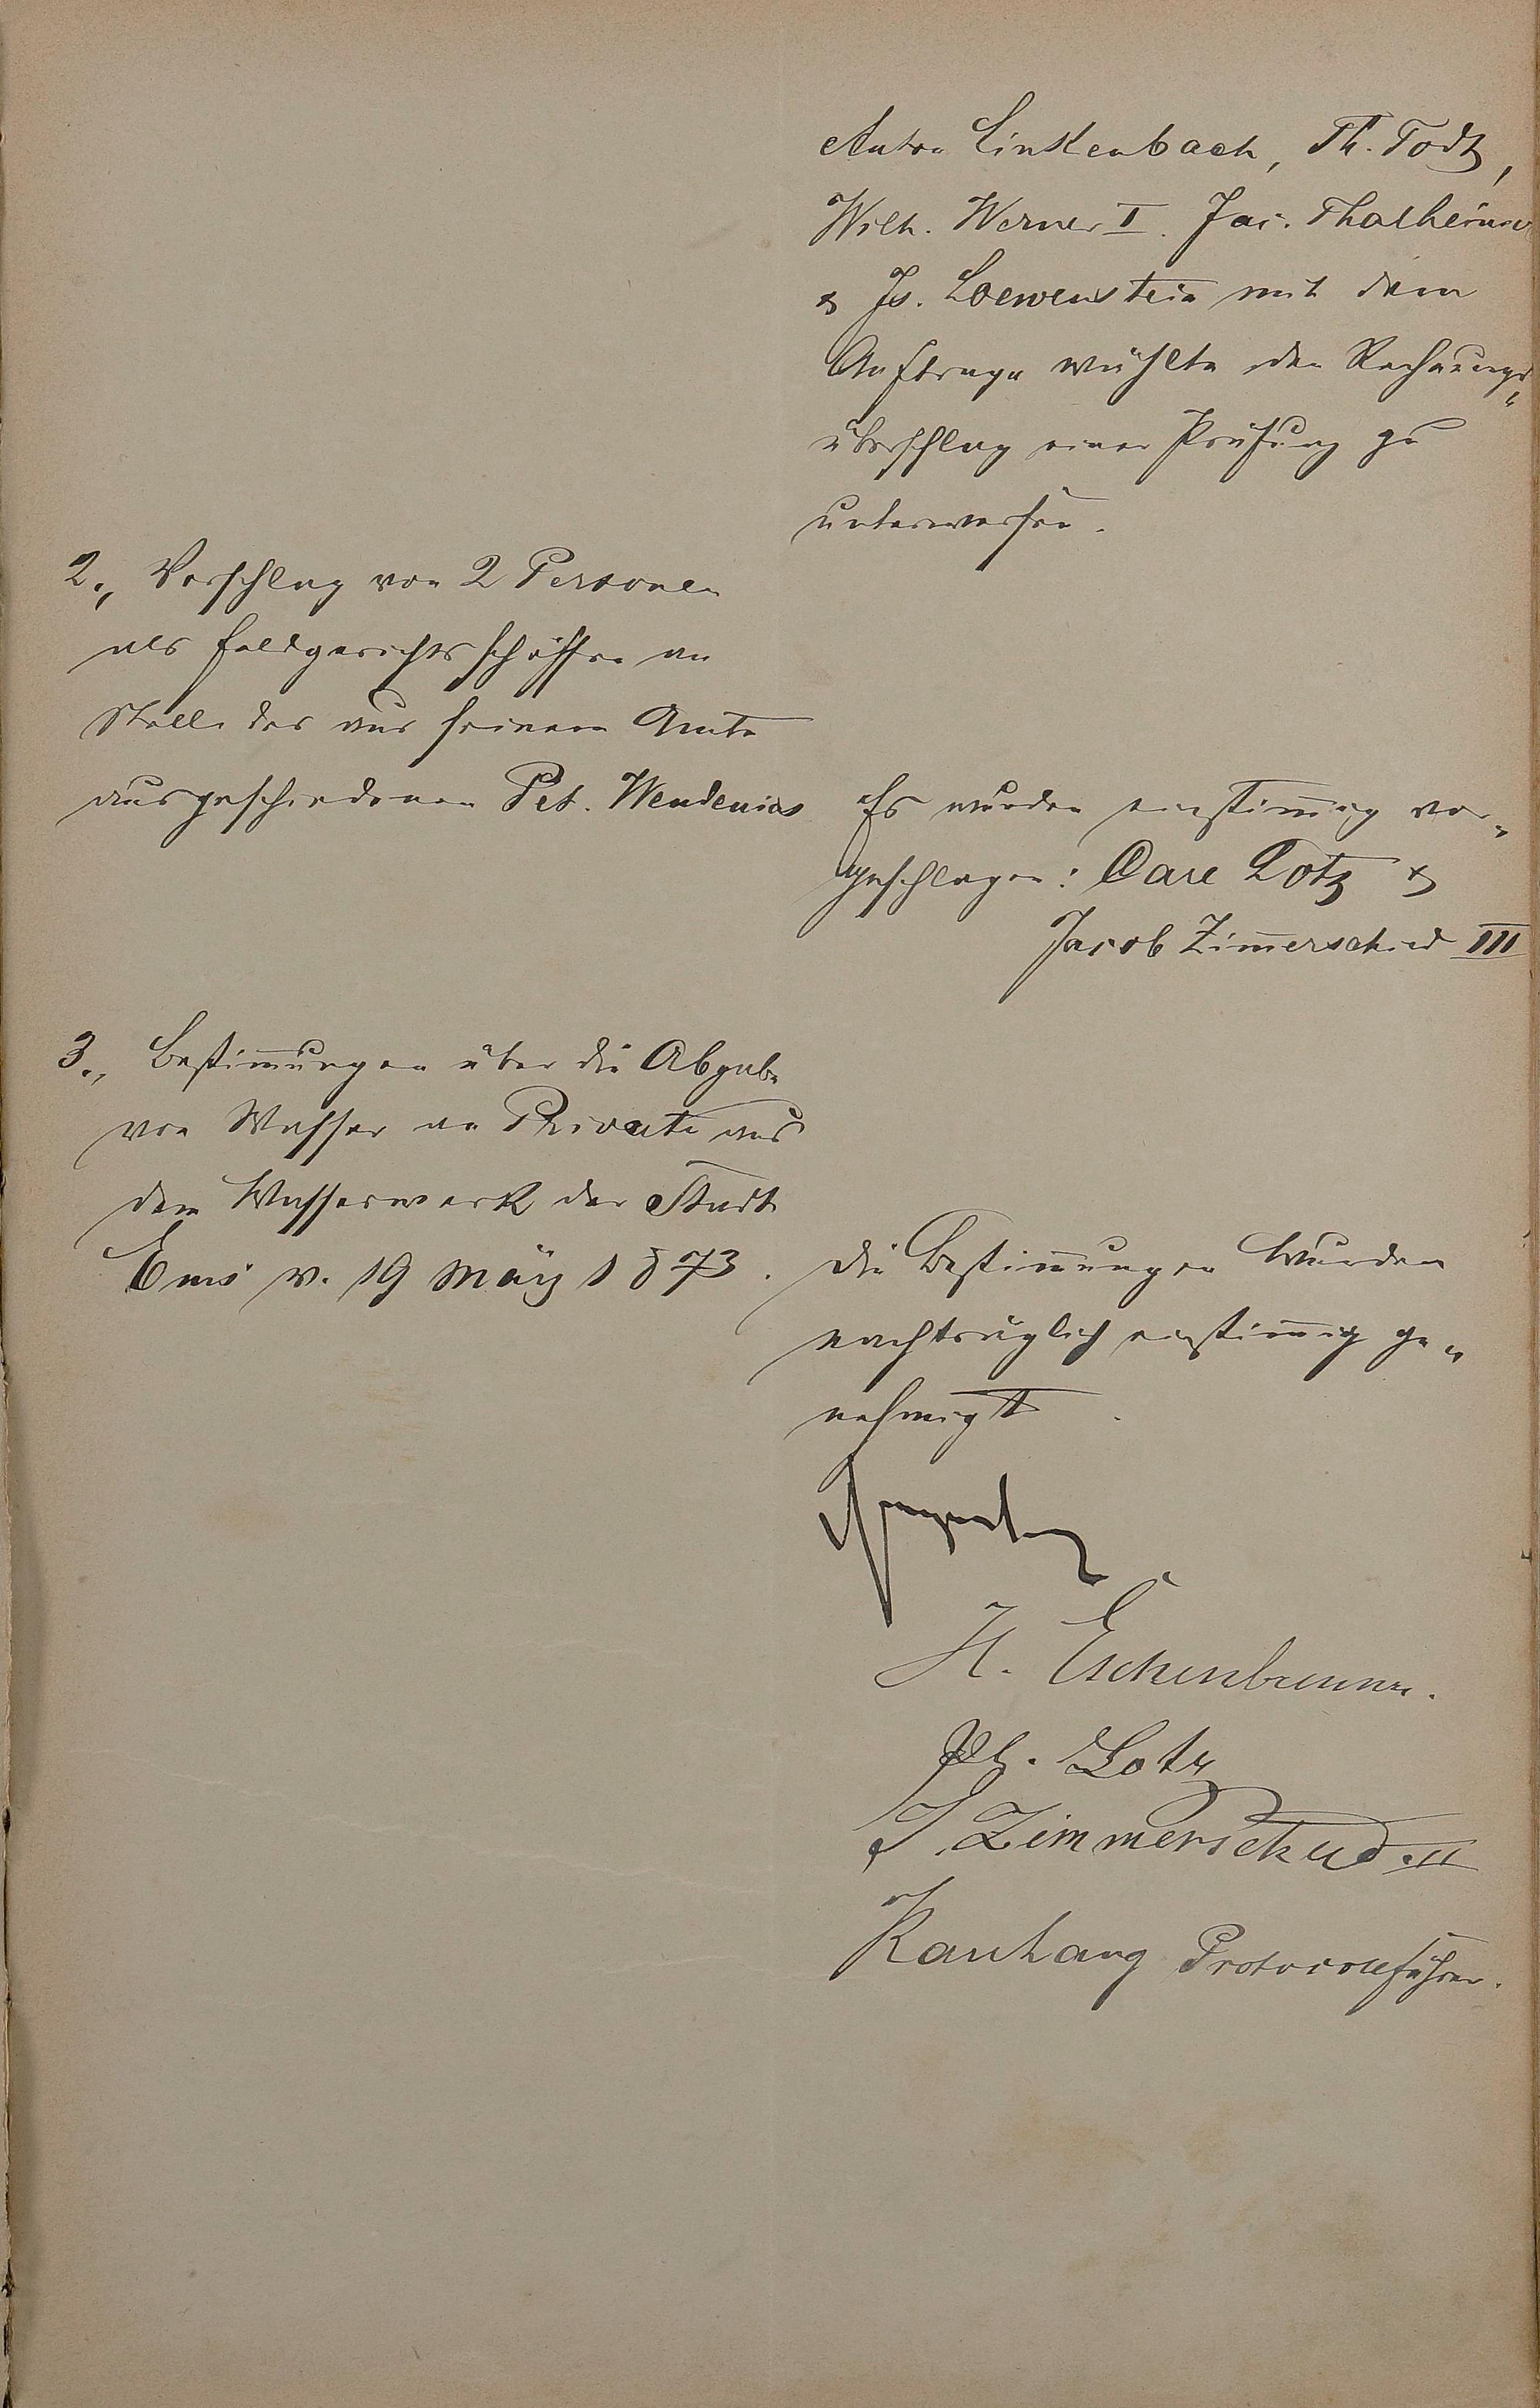 Anton Linkenbach, Th. Todt,
Wilh. Werner I. Jac. Thalheimer
& Js. Loewenstein mit dem
Auftrage wählte den Rechnungs„
überschlag einer Prüfung zu
unterwerfen.
2., Vorschlag von 2 Personen
als Feldgerichtsschöffen an
Stelle des aus seinem Amte
ausgeschiedenen Pet. Wendenius
Es wurden einstimmig vor„
geschlagen: Carl Lotz &
Jacob Zim̄erschied III
3., Bestim̄ungen über die Abgabe
von Wasser an Private aus
dem Wasserwerk der Stadt
Ems v. 19 März 1873.
Die Bestim̄ungen wurden
nachträglich einstim̄ig ge„
nehmigt.
H. Eschenbrenner.
Ph. Lotz
J Zimmerschied. II
Kauhang Protocollführer.